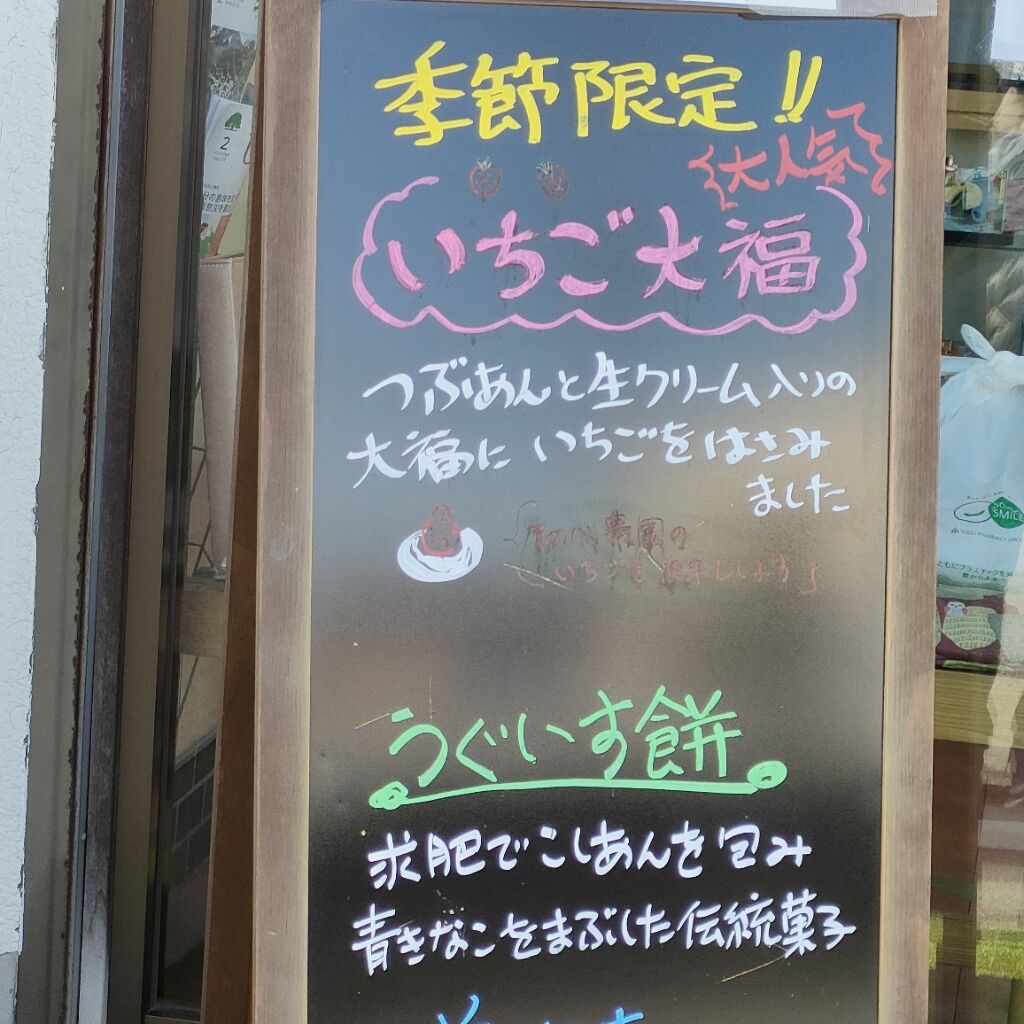 季節限定!!
大人気
いちご大福
つぶあんと生クリーム入りの
大福に いちごをはさみ
ました
農園の
いちごを使用してます
うぐいす餅
求肥でこしあんを包み
青きなこをまぶした伝統菓子
2
SMILE